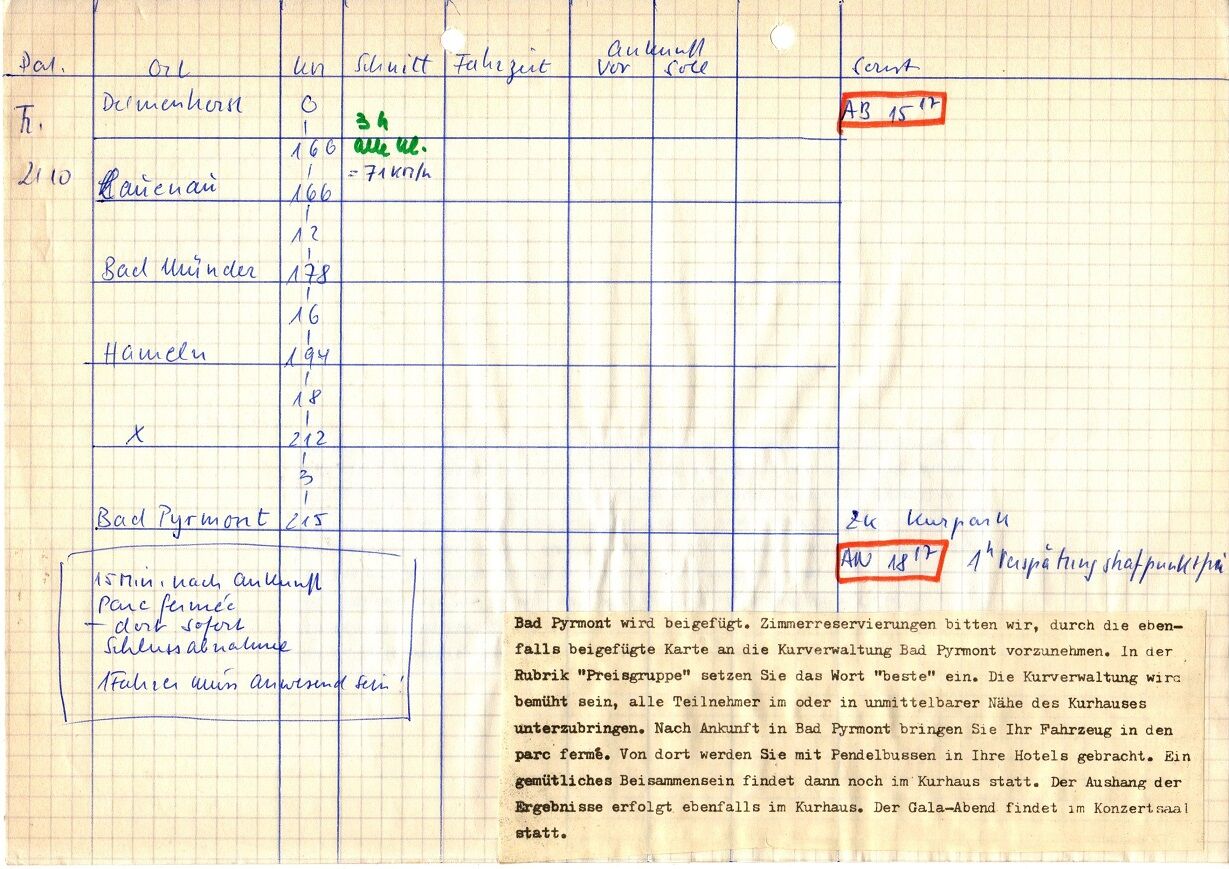 Dat. Ort km Schnitt Fahrzeit Ankunft Vor Solle Sonst
Fr. Delmenhorst 0 AB 15 17
3 h
166 alle Kl.
21 10 = 71 km/h
Lauenau 166
12
Bad Münder 178
16
Hameln 194
18
X 212
3
Bad Pyrmont 215 zu Kurpark
AN 18 17 1h Verspätung strafpunktfrei
15 Min. nach Ankunft
Parc fermée
– dort sofort
Schlussabnahme
1 Fahrer muss anwesend sein!
Bad Pyrmont wird beigefügt. Zimmerreservierungen bitten wir, durch die eben-
falls beigefügte Karte an die Kurverwaltung Bad Pyrmont vorzunehmen. In der
Rubrik "Preisgruppe" setzen Sie das Wort "beste" ein. Die Kurverwaltung wird
bemüht sein, alle Teilnehmer im oder in unmittelbarer Nähe des Kurhauses
unterzubringen. Nach Ankunft in Bad Pyrmont bringen Sie Ihr Fahrzeug in den
parc fermé. Von dort werden Sie mit Pendelbussen in Ihre Hotels gebracht. Ein
gemütliches Beisammensein findet dann noch im Kurhaus statt. Der Aushang der
Ergebnisse erfolgt ebenfalls im Kurhaus. Der Gala-Abend findet im Konzertsaal
statt.